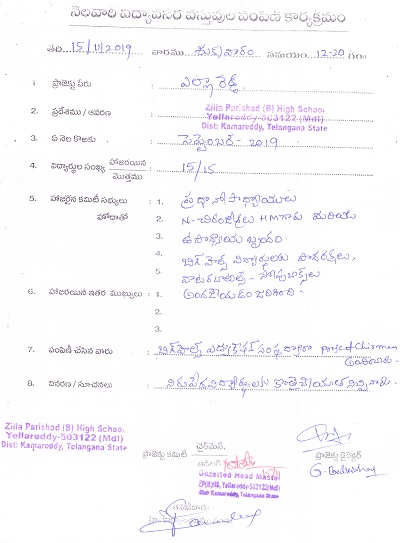 నెలవారి విద్యావసర వస్తువుల పంపిణి కార్యక్రమం
తేది 15/11/2019 వారము శుక్రవారం సమయం 12-20 గం॥
1 ప్రాజెక్టు పేరు ఎల్లారెడ్డి
2. ప్రదేశము / ఆవరణ Zilla Parishad (B) High School
Yellareddy-503122 (Mdl)
Dist: Kamareddy, Telangana State
3. ఏ నెల కొరకు సెప్టెంబర్ - 2019
4. విద్యార్థుల సంఖ్య హాజరయిన మొత్తము 15/15
5. హాజరైన కమిటీ సభ్యులు హోదాతో
1. ప్రధానోపాధ్యాయులు
2. N. చిరంజీవులు HM గారు మరియు
3. ఉపాధ్యాయ బృందం.
4. విద్యార్థులకు
5.
6. హాజరయిన ఇతర ముఖ్యులు : 1. అందచేయడం జరిగింది.
2.
3.
7. పంపిణి చేసిన వారు ఎడ్యుకేషన్ సంస్థ ద్వారా project Chirman
8. వివరణ / సూచనలు
Zilla Parishad (B) High School
Yellareddy-503122 (Mdl)
Dist: Kamareddy, Telangana State
ప్రాజెక్టు కమిటీ చైర్‌మెన్,
Gazetted Head Master
ZP(B)HS, Yellareddy-503122(Mdl)
Dist: Kamareddy, Telangana State
ప్రాజెక్టు డైరెక్టర్